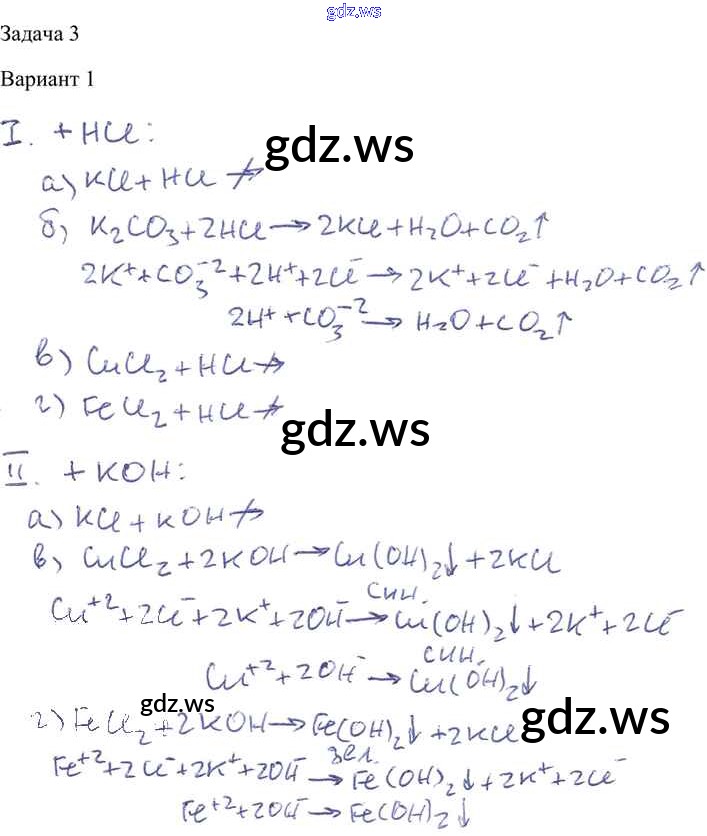 gdz.ws
Задача 3
Вариант 1
I. + HCl:
gdz.ws
а) KCl + HCl ↛
б) K₂CO₃ + 2HCl → 2KCl + H₂O + CO₂↑
2K⁺ + CO₃⁻² + 2H⁺ + 2Cl⁻ → 2K⁺ + 2Cl⁻ + H₂O + CO₂↑
2H⁺ + CO₃⁻² → H₂O + CO₂↑
в) CuCl₂ + HCl ↛
г) FeCl₂ + HCl ↛
gdz.ws
II. + KOH:
а) KCl + KOH ↛
в) CuCl₂ + 2KOH → Cu(OH)₂↓ + 2KCl
син.
Cu⁺² + 2Cl⁻ + 2K⁺ + 2OH⁻ → Cu(OH)₂↓ + 2K⁺ + 2Cl⁻
син.
Cu⁺² + 2OH⁻ → Cu(OH)₂↓
gdz.ws
gdz.ws
г) FeCl₂ + 2KOH → Fe(OH)₂↓ + 2KCl
зел.
Fe⁺² + 2Cl⁻ + 2K⁺ + 2OH⁻ → Fe(OH)₂↓ + 2K⁺ + 2Cl⁻
Fe⁺² + 2OH⁻ → Fe(OH)₂↓